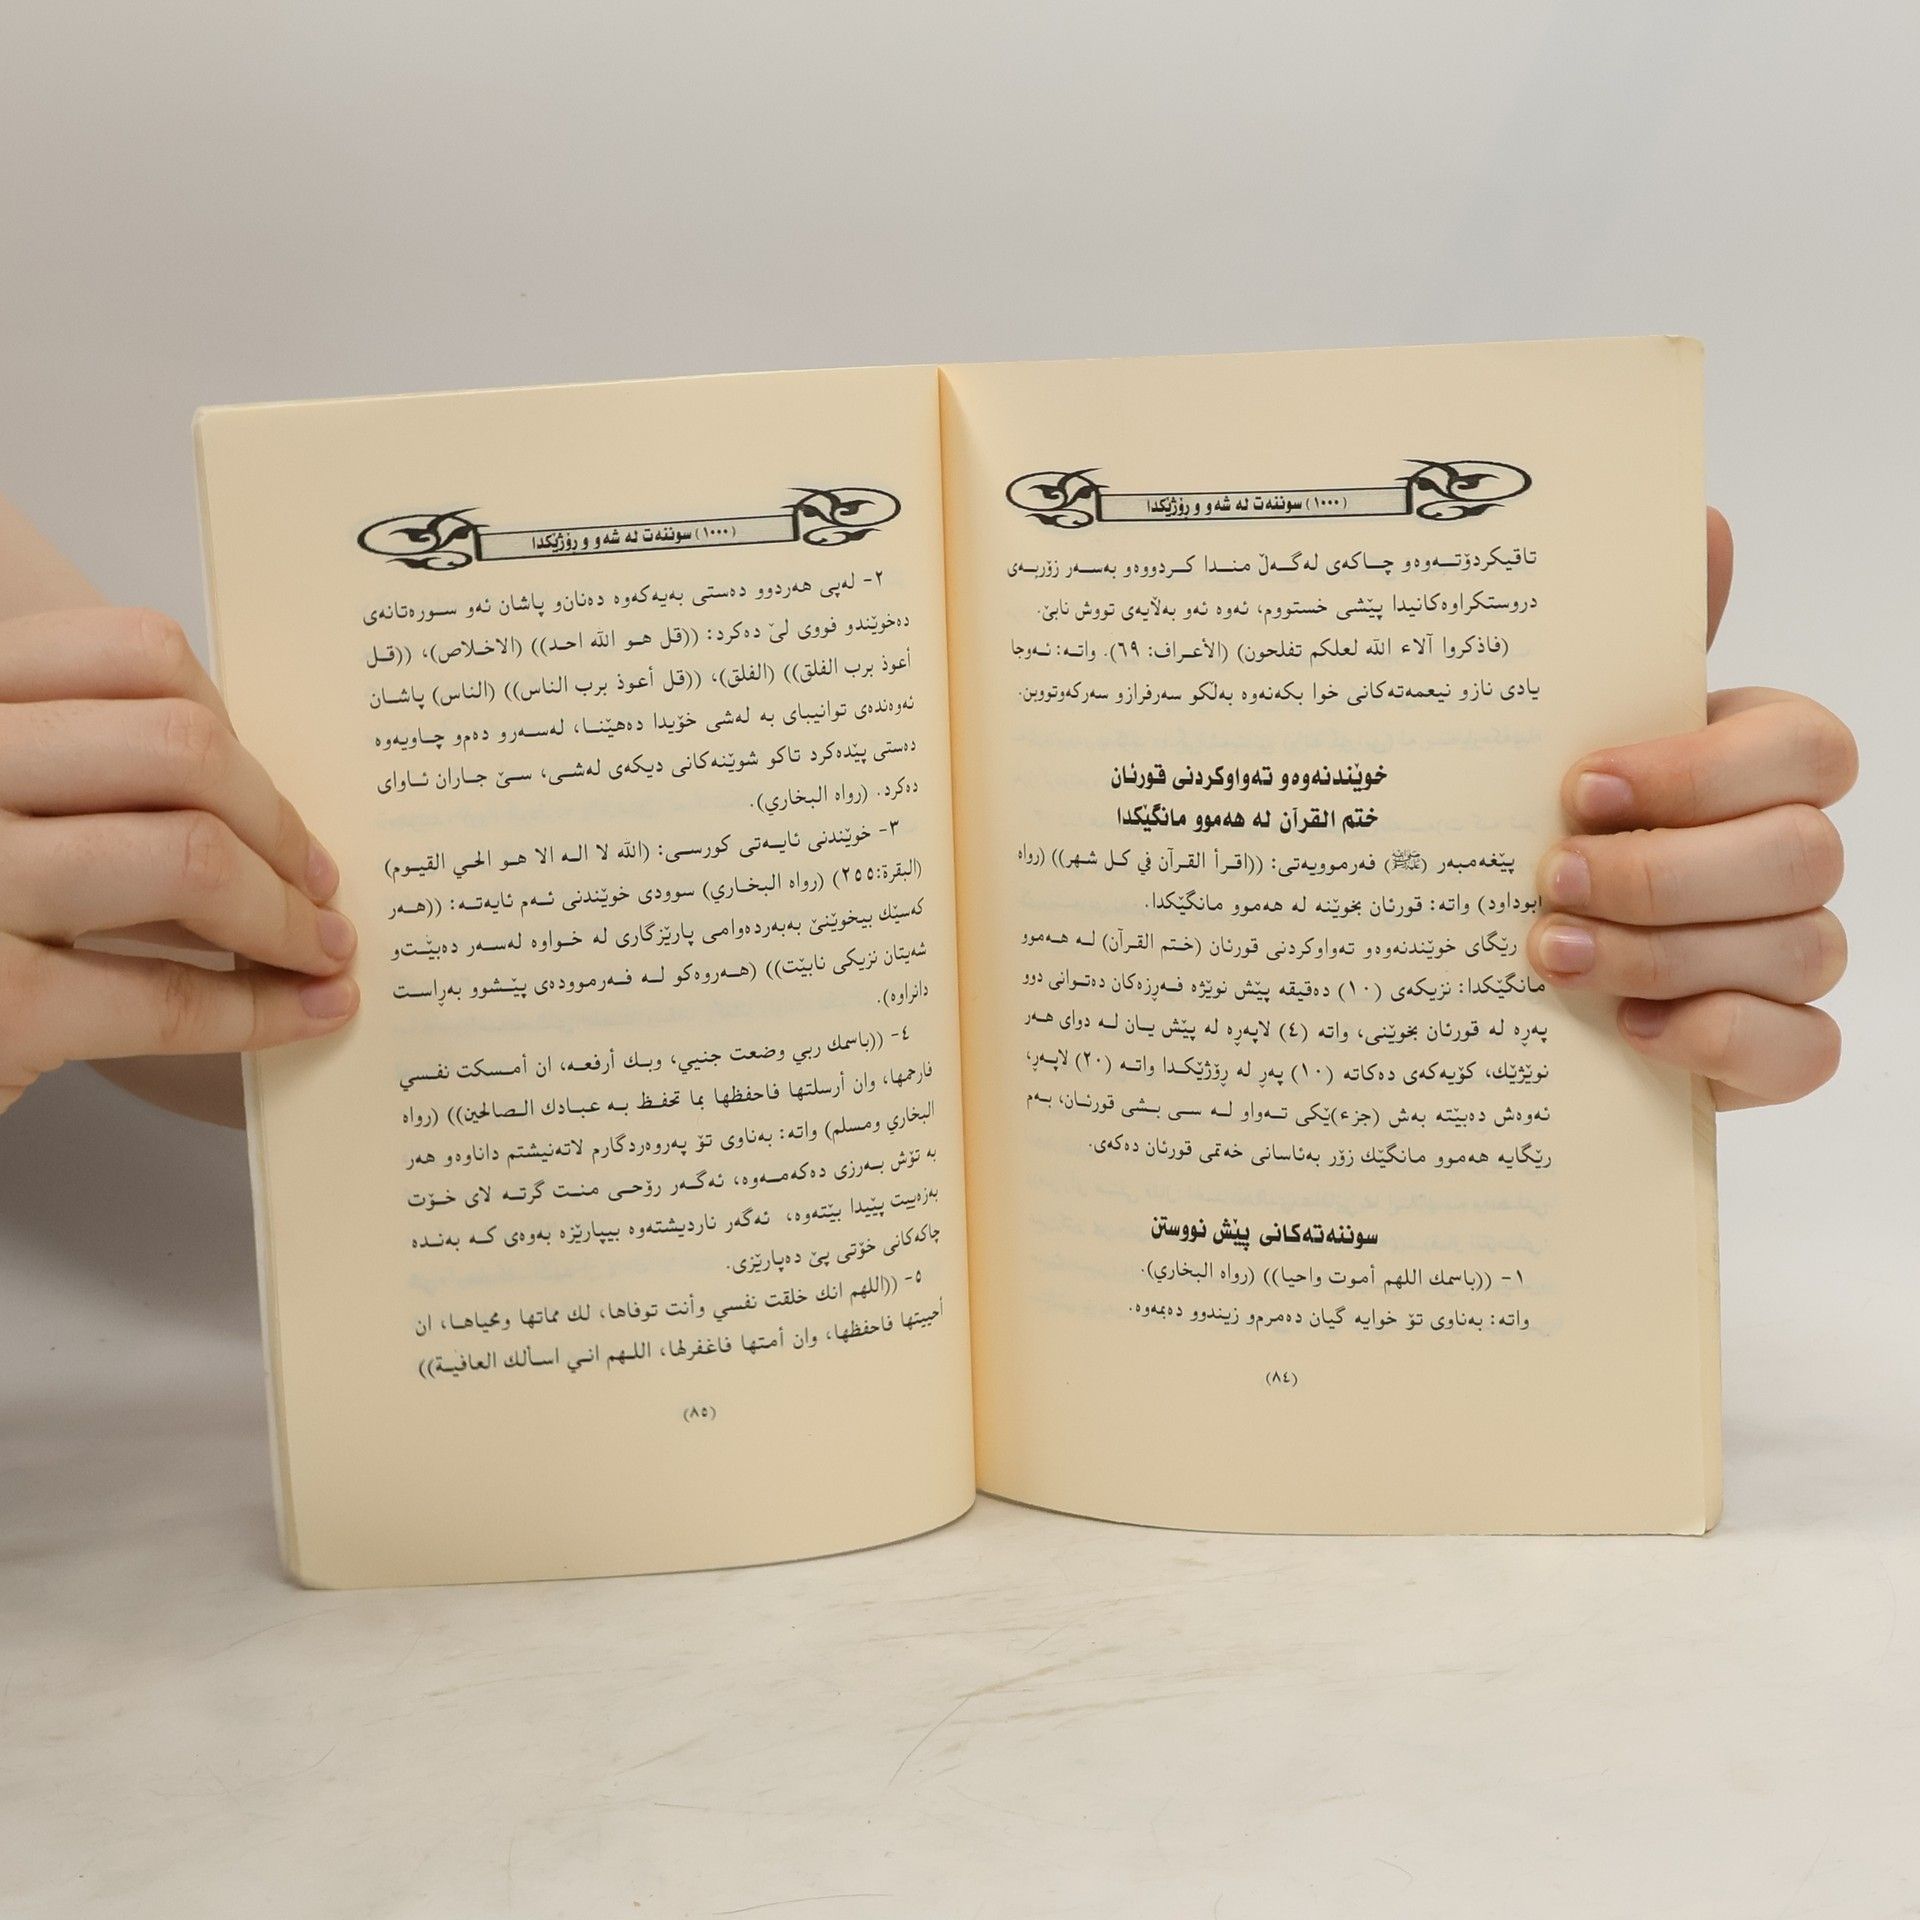 (١٠٠٠) سوننەت لە شەو و رۆژێکدا
تاقیکردۆتـــەوەو چـــاکەی لەگـــەڵ منـــدا کـــردووەو بەســـەر زۆربـــەی
دروستکراوەکانیدا پێشی خستووم، ئەوە ئەو بەڵایەی تووش نابێ.
(فاذكروا آلاء الله لعلكم تفلحون) (الأعـراف: ٦٩). واتـە: ئـەوجا
یادی نازو نیعمەتەکانی خوا بکەنەوە بەڵکو سەرفرازو سەرکەوتووبن.
خوێندنەوەو تەواوکردنی قورئان
ختم القرآن لە هەموو مانگێکدا
پێغەمبەر (ﷺ) فەرموویەتی: ((اقـرأ القـرآن في كـل شـهر)) (رواه
ابوداود) واتە: قورئان بخوێنە لە هەموو مانگێکدا.
رێگای خوێندنەوەو تەواوکردنی قورئان (ختـم القـرآن) لـە هـەموو
مانگێکدا: نزیکەی (١٠) دەقیقە پێش نوێژە فـەرزەکان دەتـوانی دوو
پەڕە لە قورئان بخوێنی، واتە (٤) لاپەڕە لە پێش یـان لـە دوای هـەر
نوێژێك، کۆیەکەی دەکاتە (١٠) پەڕ لە ڕۆژێکـدا واتـە (٢٠) لاپـەڕ،
ئەوەش دەبێتە بەش (جزء)ێکی تـەواو لـە سـی بـشی قورئـان، بـەم
رێگایە هەموو مانگێك زۆر بەئاسانی خەتمی قورئان دەکەی.
سوننەتەکانی پێش نووستن
١- ((باسمك اللهم أموت واحيا)) (رواه البخاري).
واتە: بەناوی تۆ خوایە گیان دەمرم‌و زیندوو دەبمەوە.
(٨٤)
(١٠٠٠) سوننەت لە شەو و رۆژێکدا
٢- لەپی هەردوو دەستی بەیەکەوە دەنان‌و پاشان ئەو سـورەتانەی
دەخوێندو فووی لێ دەکرد: ((قل هـو الله احـد)) (الاخـلاص)، ((قـل
أعوذ برب الفلق)) (الفلق)، ((قل أعوذ برب الناس)) (الناس) پاشـان
ئەوەندەی توانیبای بە لەشی خۆیدا دەهێنـا، لەسـەرو دەم‌و چـاویەوە
دەستی پێدەکرد تاکو شوێنەکانی دیکەی لەشـی، سـێ جـاران ئـاوای
دەکرد. (رواه البخاري).
٣- خوێندنی ئایـەتی کورسـی: (الله لا الـه الا هـو الحـي القيـوم)
(البقرة:٢٥٥) (رواه البخـاري) سوودی خوێندنی ئـەم ئایەتـە: ((هـەر
کەسێك بیخوێنێ بەبەردەوامی پارێزگاری لە خـواوە لەسـەر دەبێـت‌و
شەیتان نزیکی نابێت)) (هـەروەکو لـە فـەرموودەی پێـشوو بەڕاسـت
دانراوە).
٤- ((باسمك ربي وضعت جنبي، وبـك أرفعـه، ان أمـسكت نفـسي
فارحمها، وان أرسلتها فاحفظها بما تحفـظ بـه عبـادك الـصالحين)) (رواه
البخاري ومسلم) واتە: بەناوی تۆ پەروەردگارم لاتەنیشتم داناوەو هەر
بە تۆش بـەرزی دەکەمـەوە، ئەگـەر رۆحـی منـت گرتـە لای خـۆت
بەزەییت پێیدا بێتەوە، ئەگەر ناردیشتەوە بیپارێزە بەوەی کـە بەنـدە
چاکەکانی خۆتی پێ دەپارێزی.
٥- ((اللهم انك خلقت نفسي وأنت توفاها، لك مماتها ومحياهـا، ان
أحييتها فاحفظها، وان أمتها فاغفرلها، اللـهم انـي اسـألك العافيـة))
(٨٥)